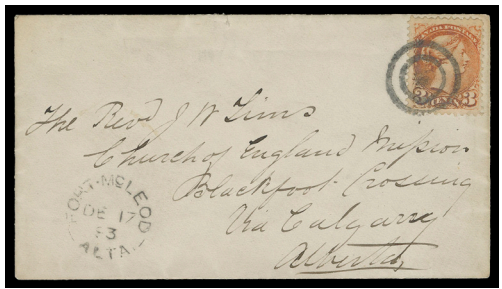 CANADA POSTAGE
3 CENTS 3
The Revd J W Tims
Church of England Mission
Blackfoot Crossing
Via Calgarry
Alberta
FORT-McLEOD
DE 17
83
ALTA